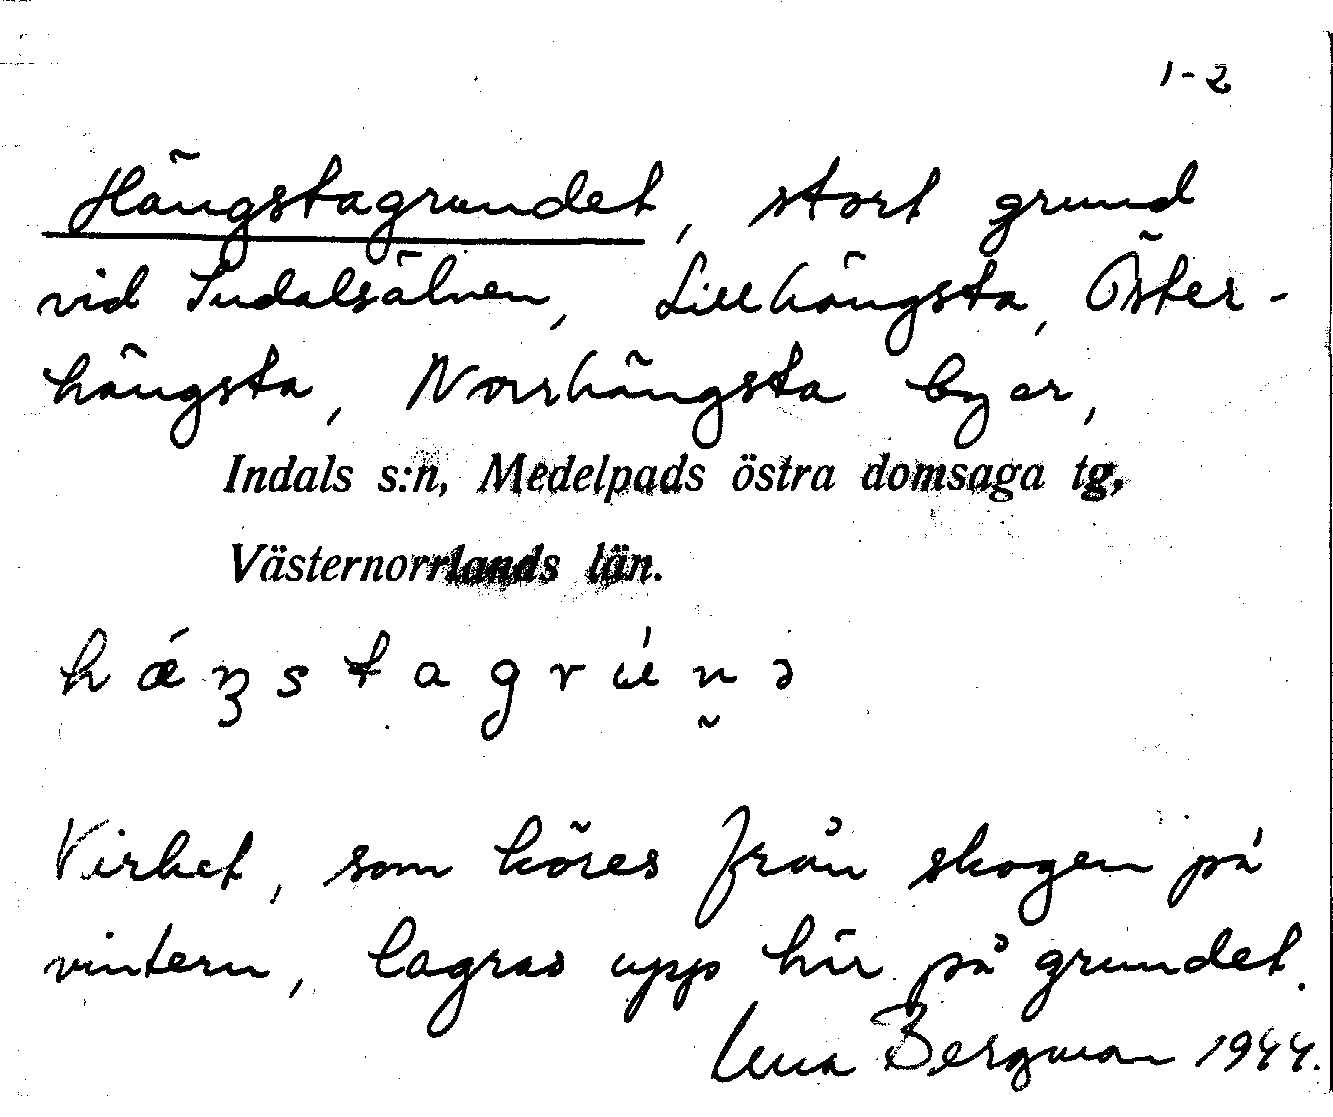 1-2
Hängstagrundet, stort grund
vid Indalsälven, Lillhängsta, Öster-
hängsta, Norrhängsta byar,
Indals s:n, Medelpads östra domsaga tg,
Västernorrlands län.
hǽŋstagrún̬ə
Virket, som köres från skogen på
vintern, lagras upp här på grundet.
Lena Bergman 1944.